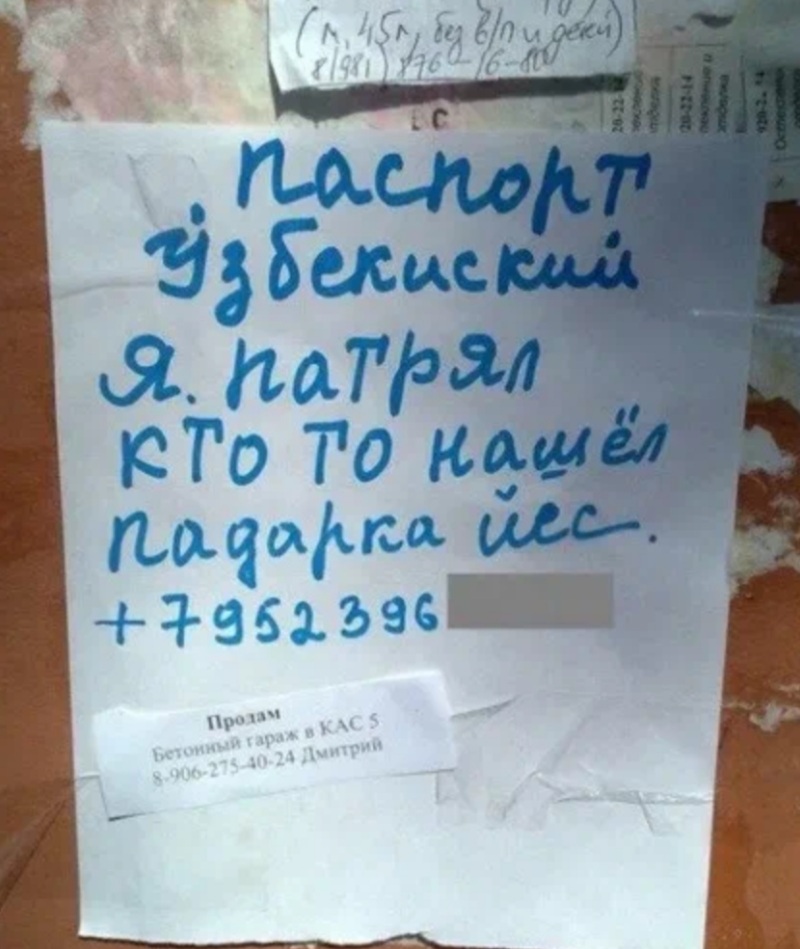 (м, 45л, без в/п и детей)
паспорт
Ўзбекиский
Я. патрял
кто то нашёл
падарка йес.
+7952396
Продам
Бетонный гараж в КАС 5
8-906-275-40-24 Дмитрий